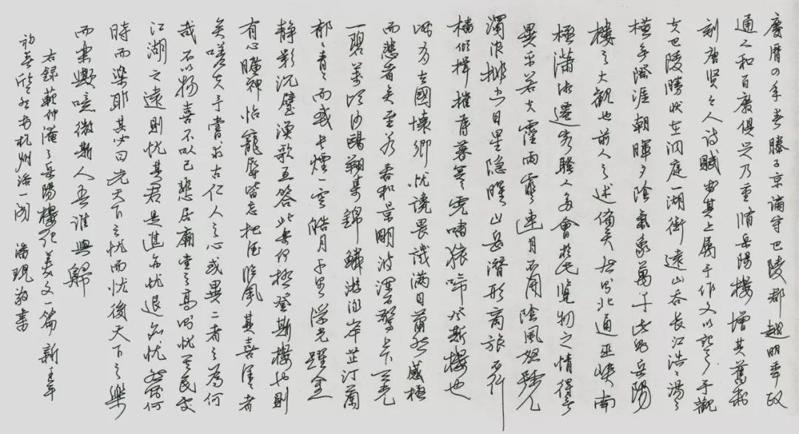 慶曆四年春滕子京謫守巴陵郡越明年政
通人和百廢俱興乃重脩岳陽樓增其舊制
刻唐賢今人詩賦於其上屬予作文以記之予觀
夫巴陵勝狀在洞庭一湖銜遠山吞長江浩浩湯湯
橫無際涯朝暉夕陰氣象萬千此則岳陽
樓之大觀也前人之述備矣然則北通巫峽南
極瀟湘遷客騷人多會於此覽物之情得無
異乎若夫霪雨霏霏連月不開陰風怒號
濁浪排空日星隱曜山岳潛形商旅不行
檣傾楫摧薄暮冥冥虎嘯猿啼登斯樓也
則有去國懷鄉憂讒畏譏滿目蕭然感極
而悲者矣至若春和景明波瀾不驚上下天光
一碧萬頃沙鷗翔集錦鱗游泳岸芷汀蘭
郁郁青青而或長煙一空皓月千里浮光躍金
靜影沉璧漁歌互答此樂何極登斯樓也則
有心曠神怡寵辱皆忘把酒臨風其喜洋洋者
矣嗟夫予嘗求古仁人之心或異二者之為何
哉不以物喜不以己悲居廟堂之高則憂其民處
江湖之遠則憂其君是進亦憂退亦憂然則何
時而樂耶其必曰先天下之憂而憂後天下之樂
而樂歟噫微斯人吾誰與歸
右錄范仲淹之岳陽樓記美文一篇
於杭州 潘現 書